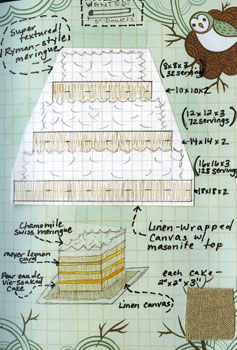 WANTED:
Super
textured
Ryman-style
meringue
(8x8x3
32 servings)
←10x10x2
(12x12x3
72 servings)
←14x14x2
(16x16x3
128 servings)
←18x18x2
Linen-Wrapped
Canvas w/
masonite top
Chamomile
Swiss meringue
meyer lemon
curd
each cake-
2"x2"x3"
Linen canvas